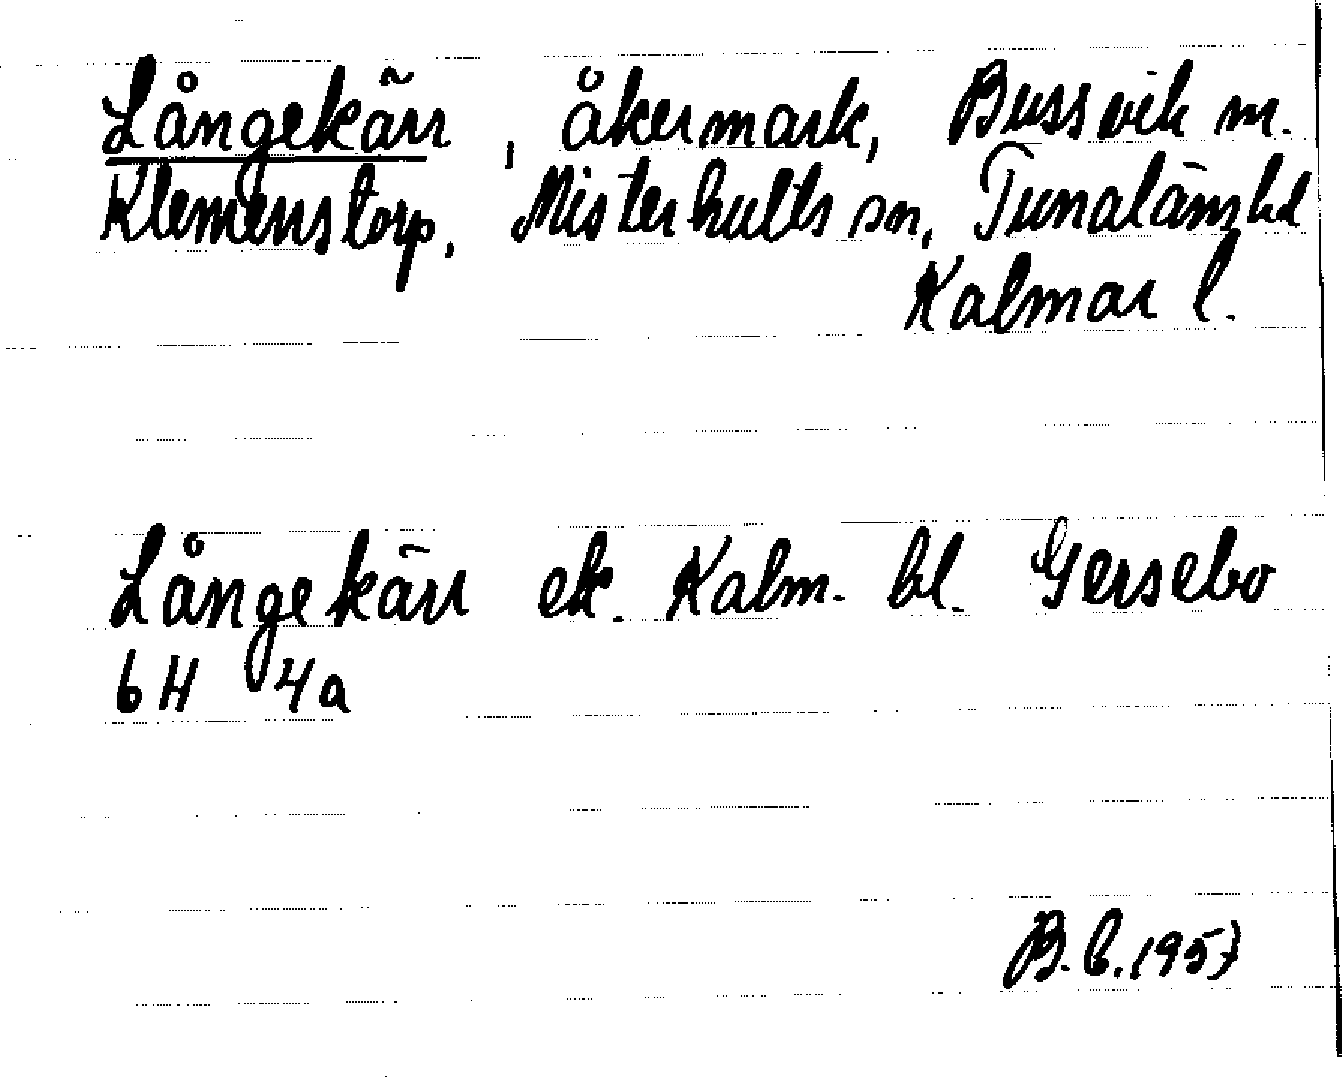 Långekärr, åkermark, Bussvik m.
Klemenstorp, Misterhults sn, Tunaläns hd
Kalmar l.
Långekärr ek. Kalm. bl. Gersebo
6H 4a
B.C. 1957